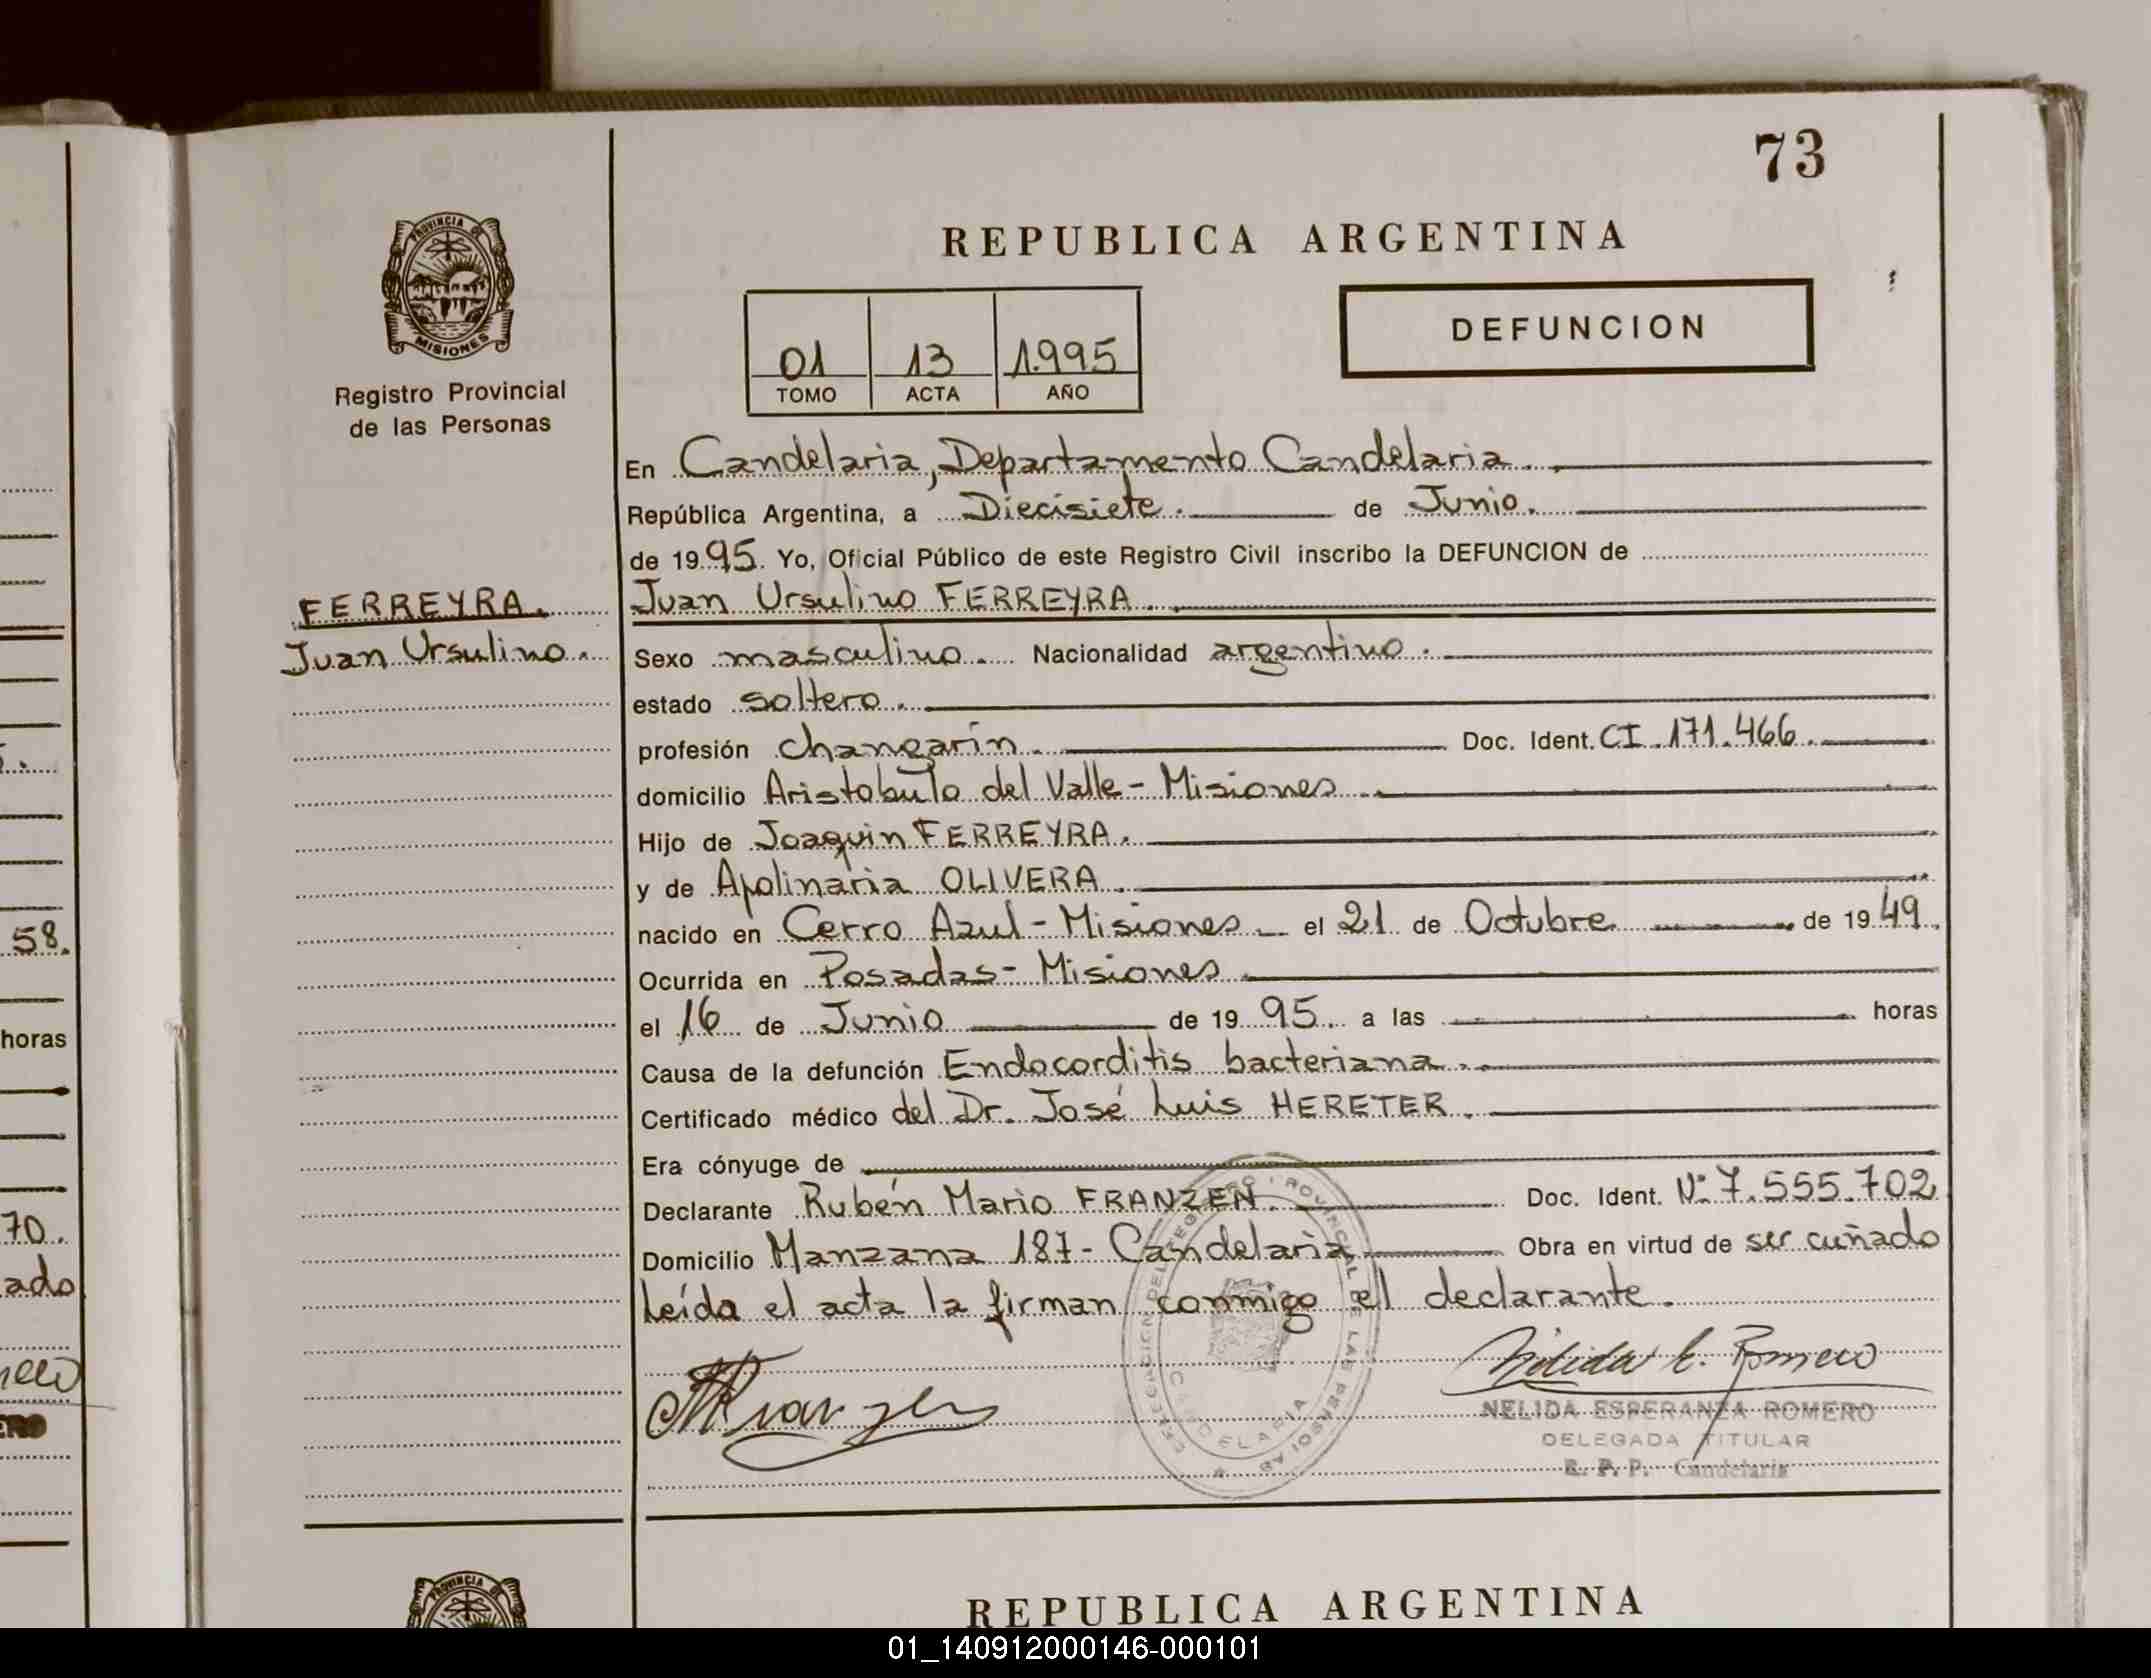 73
PROVINCIA DE
MISIONES
Registro Provincial
de las Personas
REPUBLICA ARGENTINA
01 13 1.995
TOMO ACTA AÑO
DEFUNCION
FERREYRA.
Juan Ursulino.
En Candelaria, Departamento Candelaria.
República Argentina, a Diecisiete. de Junio.
de 1995. Yo, Oficial Público de este Registro Civil inscribo la DEFUNCION de
Juan Ursulino FERREYRA.
Sexo masculino. Nacionalidad argentino.
estado soltero.
profesión changarín. Doc. Ident. CI 171.466.
domicilio Aristobulo del Valle - Misiones.
Hijo de Joaquin FERREYRA.
y de Apolinaria OLIVERA.
nacido en Cerro Azul - Misiones - el 21 de Octubre de 1949.
Ocurrida en Posadas - Misiones
el 16 de Junio de 1995. a las horas
Causa de la defunción Endocorditis bacteriana.
Certificado médico del Dr. José Luis HERETER.
Era cónyuge de
Declarante Rubén Mario FRANZEN. Doc. Ident. Nº 7.555.702
Domicilio Manzana 187 - Candelaria Obra en virtud de ser cuñado
Leída el acta la firman conmigo el declarante.
Nélida E. Romero
NELIDA ESPERANZA ROMERO
DELEGADA TITULAR
R. P. P. Candelaria
CANDELARIA
58.
horas
70.
ado
PROVINCIA DE
REPUBLICA ARGENTINA
01_140912000146-000101